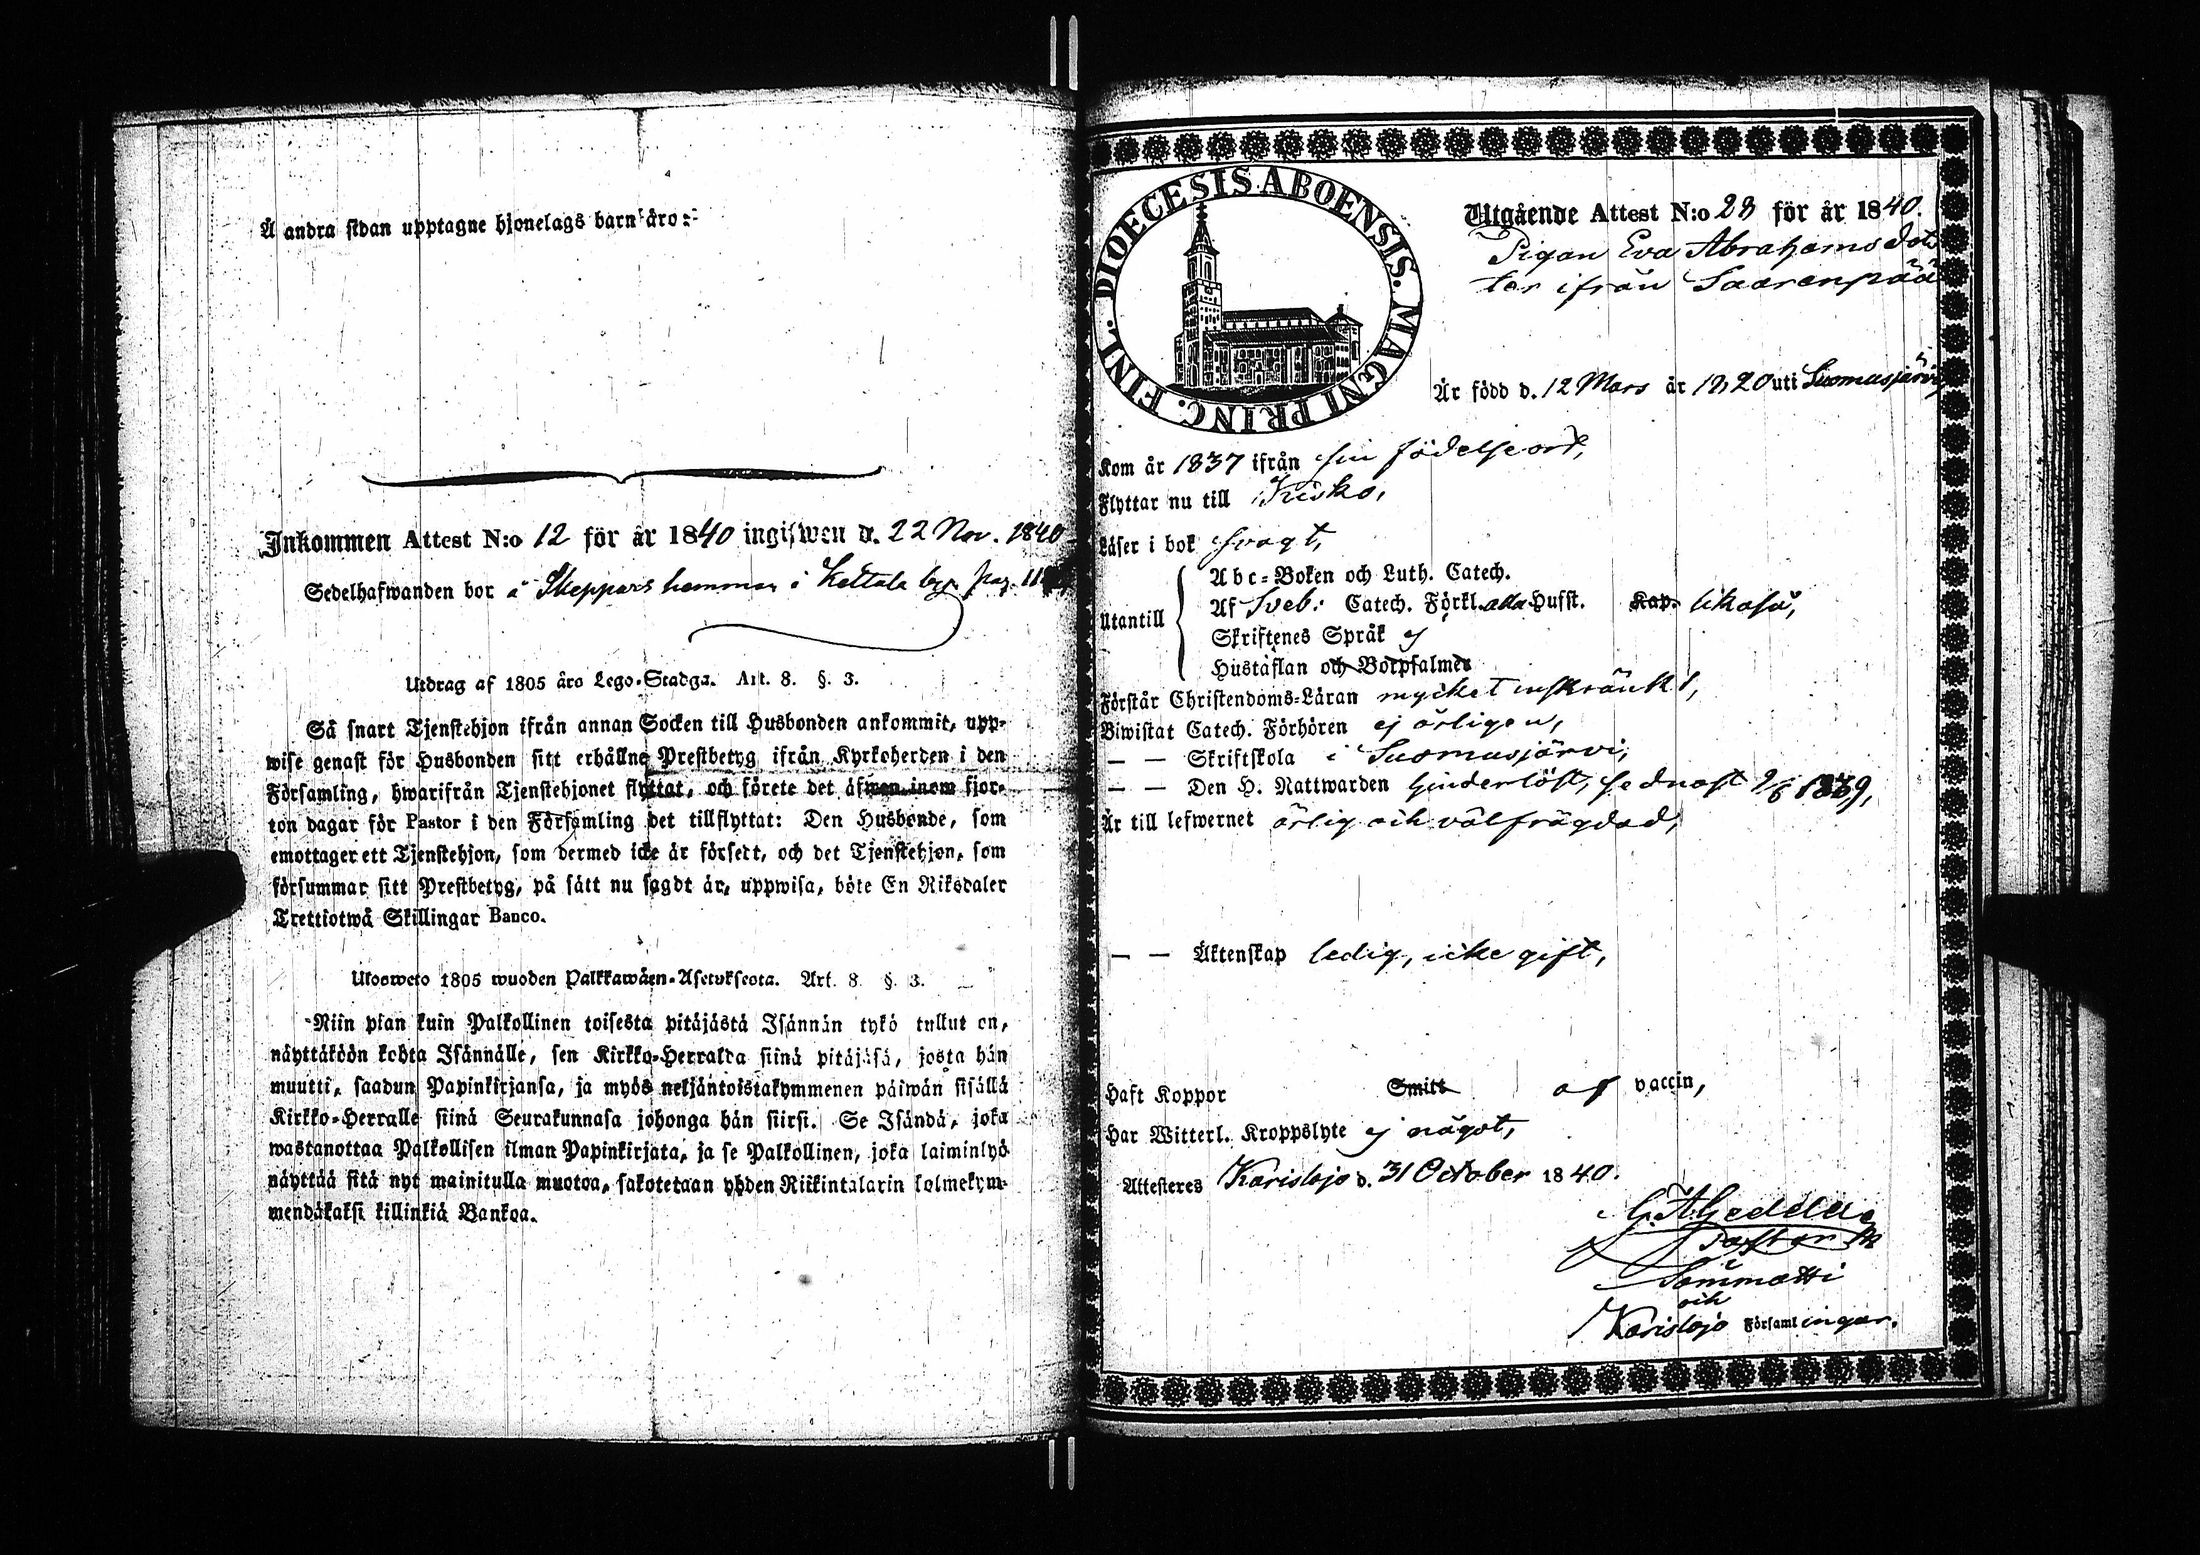 Å andra sidan upptagne hjonelags barn äro:
Inkommen Attest N:o 12 för år 1840 ingifwen d. 22 Nov. 1840
Sedelhafwanden bor å Skeppars hemman i Kettala by. pag.
Utdrag af 1805 års Lego-Stadga. Art. 8. §. 3.
Så snart Tjenstehjon ifrån annan Socken till Husbonden ankommit, upp-
wise genast för Husbonden sitt erhållne Prestbetyg ifrån Kyrkoherden i den
Församling, hwarifrån Tjenstehjonet flyttat, och förete det äfwen inom fjor-
ton dagar för Pastor i den Församling det tillflyttat: Den Husbonde, som
emottager ett Tjenstehjon, som dermed icke är försedt, och det Tjenstehjon, som
försummar sitt Prestbetyg, på sätt nu sagdt är, uppwisa, böte En Riksdaler
Trettiotwå Skillingar Banco.
Ulosweto 1805 wuoden Palkkawäen-Asetuksesta. Art. 8 §. 3.
Niin pian kuin Palkollinen toisesta pitäjästä Isännän tykö tullut on,
näyttäköön kohta Isännälle, sen Kirkko-Herralda siinä pitäjäsä, josta hän
muutti, saadun Papinkirjansa, ja myös neljäntoistakymmenen päiwän sisällä
Kirkko-Herralle siinä Seurakunnasa johonga hän siirsi. Se Isändä, joka
wastanottaa Palkollisen ilman Papinkirjata, ja se Palkollinen, joka laiminlyö
näyttää sitä nyt mainitulla muotoa, sakotetaan yhden Riikintalarin kolmekym-
mendäkaksi killinkiä Bankoa.
DIOECESIS ABOENSIS. MAGNI PRINC. FINL.
Utgående Attest N:o 28 för år 1840.
Pigan Eva Abrahamsdot
ter ifrån Saarenpää
Är född d. 12 Mars år 1820 uti Suomusjärvi,
Kom år 1837 ifrån sin födelseort,
Flyttar nu till Kisko,
Läser i bok svagt,
Abc-Boken och Luth. Catech.
Utantill Af Sveb: Catech. Förkl. alla Hufst. Kap. likaså,
Skriftenes Språk ej
Hustaflan och Botpsalmer
Förstår Christendoms-Läran mycket inskränkt,
Biwistat Catech. Förhören ej årligen,
— — Skriftskola i Suomusjärvi,
— — Den H. Nattwarden hinderlöst, sednast 1839,
Är till lefwernet ärlig och välfrägdad,
— — Äktenskap ledig, icke gift,
Haft Koppor Smitt af vaccin,
Har Witterl. Kroppslyte ej något,
Attesteres Karislojo d. 31 October 1840.
G. A. Gedda
Pastor
Sammatti
och
Karislojo Församlingar.